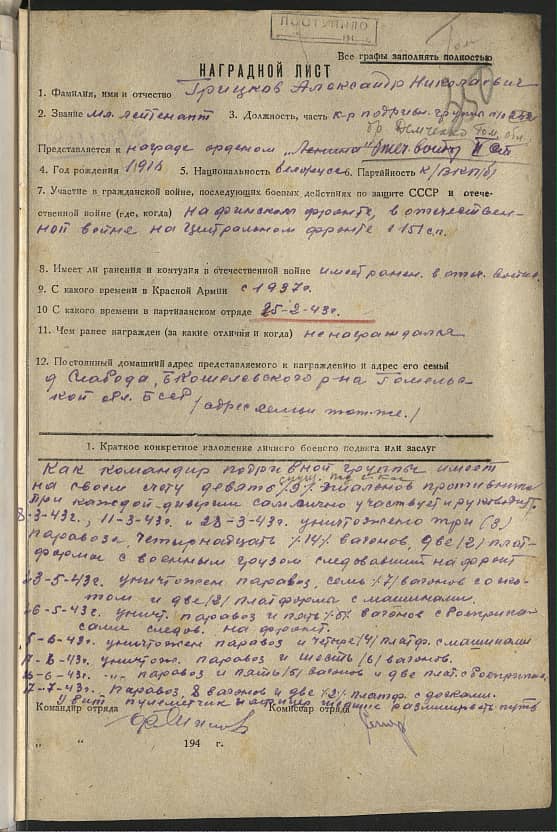 ПОСТУПИЛО
Все графы заполнять полностью
НАГРАДНОЙ ЛИСТ
1. Фамилия, имя и отчество Грицков Александр Николаевич
2. Звание мл. лейтенант 3. Должность, часть к-р подривн. группы п/о
Представляется к награде орденом „Ленина" Отеч. войны II ст.
4. Год рождения 1916 5. Национальность белорусс 6. Партийность к/ВКП/б/
7. Участие в гражданской войне, последующих боевых действиях по защите СССР и отече-
ственной войне (где, когда) На финском фронте, в отечествен-
ной войне на Центральном фронте в 151 сп.
8. Имеет ли ранения и контузия в отечественной войне имеет ранен. в отеч.
9. С какого времени в Красной Армии с 1937г.
10 С какого времени в партизанском отряде 25-2-43г.
11. Чем ранее награжден (за какие отличия и когда) не награждался
12. Постоянный домашний адрес представляемого к награждению и адрес его семьи
д. Слобода, Б Кошелевского р-на Гомельс-
кой обл. БССР /адрес семьи тот-же./
1. Краткое конкретное изложение личного боевого подвига или заслуг
Как командир подривной группы имеет
на своем счету девять /9/ эшелонов противника
При каждой диверсии сам лично участвует и руководит.
8-3-43г., 11-3-43г. и 28-3-43г. уничтожено три (3)
паровоза, четырнадцать /14/ вагонов, две /2/ плат-
формы с военным грузом следовавший на фронт
3-5-43г. уничтожен паровоз, семь /7/ вагонов со
и две /2/ платформы с машинами.
6-5-43г. уничт. паровоз и пять /5/ вагонов с боеприпа-
сами следов. на фронт.
5-6-43г. уничтожен паровоз и четыре /4/ платф. с машинами
6-43г. уничтож. паровоз и шесть /6/ вагонов.
6-43г. -"- паровоз и пять /5/ вагонов и две плат. с боеприпас.
7-7-43г. Паровоз, 8 вагонов и две /2/ платф. с досками.
Убит пулеметчик и офицер
Командир отряда Комиссар отряда
„ " 194 г.